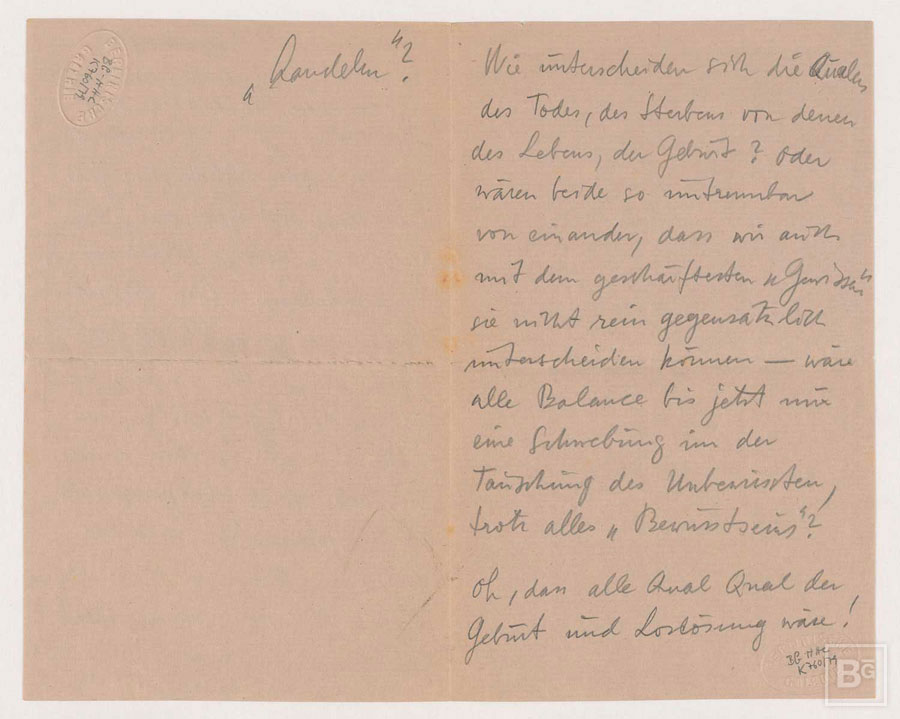 „Handeln"?
Wie unterscheiden sich die Qualen
des Todes, des Sterbens von denen
des Lebens, der Geburt? Oder
wären beide so untrennbar
von einander, dass wir auch
mit dem geschärftesten „Gewissen"
sie nicht rein gegensätzlich
unterscheiden können — wäre
alle Balance bis jetzt nur
eine Schwebung in der
Täuschung des Unbewussten,
trotz alles „Bewusstseins"?
Oh, dass alle Qual Qual der
Geburt und Loslösung wäre!
BG-HHC
K760/79
BG HHC
K760/79
BG